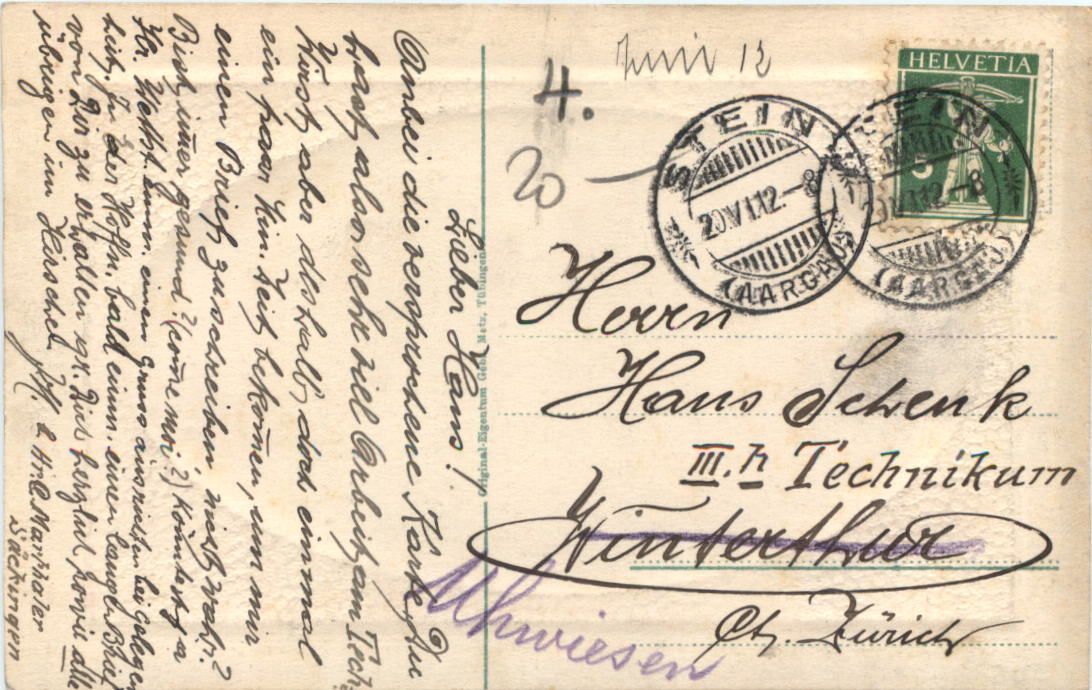 Juni 12
4.
20
HELVETIA
5
STEIN
20.VI.12.-8
(AARGAU)
STEIN
20.VI.12.-8
(AARGAU)
Herrn
Hans Schenk
III. h Technikum
Winterthur
Uhwiesen
Ct. Zürich
Original-Eigentum Gebr. Metz, Tübingen
Lieber Hans!
Anbei die versprochene Karte. Du
hast also sehr viel Arbeit am Tech.
Wirst aber deshalb doch einmal
ein paar Min. Zeit bekommen, um mir
einen Brief zu schreiben nicht wahr?
Bist immer gesund? (comme moi?) Könntest a
Hr. Wettst. einen Gruss ausrichten bei Gelegen
heit. In der Hoffn. bald einen
von Dir zu erhalten gr. Dich herzlich sowie alle
übrigen im
Säckingen